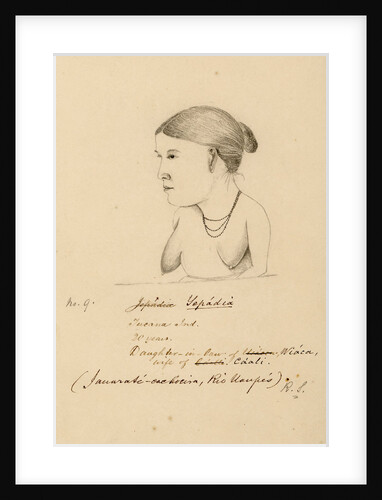 No. 9. Jepádia Yepádia
Tucano Ind.
20 years.
Daughter-in-law of Wiáca,
wife of Cáali.
(Jauarité-cachoeira, Rio Uaupés).
R. S.